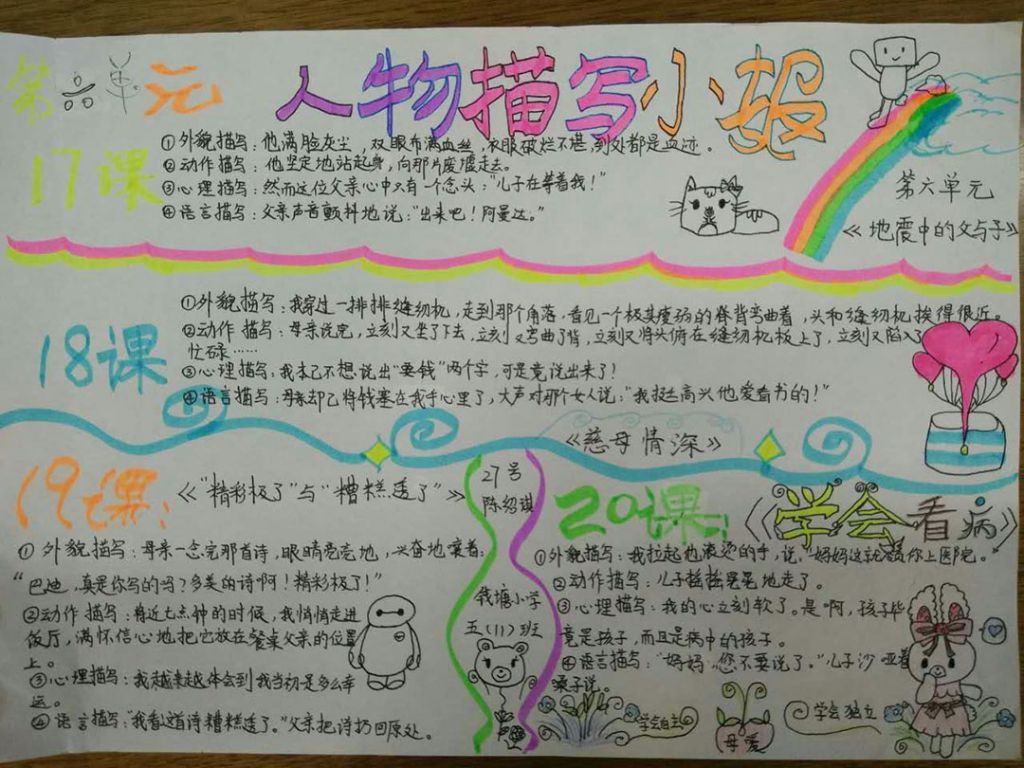 第六单元
人物描写小报
17课
①外貌描写：他满脸灰尘，双眼布满血丝，衣服破烂不堪，到处都是血迹。
②动作描写：他坚定地站起身，向那片废墟走去。
③心理描写：然而这位父亲心中只有一个念头："儿子在等着我！"
④语言描写：父亲声音颤抖地说："出来吧！阿曼达。"
第六单元
《地震中的父与子》
18课
①外貌描写：我穿过一排排缝纫机，走到那个角落，看见一个极其瘦弱的脊背弯曲着，头和缝纫机挨得很近。
②动作描写：母亲说完，立刻又坐了下去，立刻又弯曲了背，立刻又将头俯在缝纫机板上了，立刻又陷入了
忙碌……
③心理描写：我本己不想说出"要钱"两个字，可是竟说出来了！
④语言描写：母亲却已将钱塞在我手心里了，大声对那个女人说："我挺高兴他爱看书的！"
《慈母情深》
19课：
《"精彩极了"与"糟糕透了"》
①外貌描写：母亲一念完那首诗，眼睛亮亮地，兴奋地嚷着：
"巴迪，真是你写的吗？多美的诗啊！精彩极了！"
②动作描写：将近七点钟的时候，我悄悄走进
饭厅，满怀信心地把它放在餐桌父亲的位置
上。
③心理描写：我越来越体会到我当初是多么幸
运。
④语言描写："我看这首诗糟糕透了。"父亲把诗扔回原处。
27号
陈绍琪
钱塘小学
五（11）班
20课：
《学会看病》
①外貌描写：我拉起他滚烫的手，说，"妈妈这就领你上医院。"
②动作描写：儿子摇摇晃晃地走了。
③心理描写：我的心立刻软了。是啊，孩子毕
竟是孩子，而且是病中的孩子。
④语言描写："妈妈，您不要说了。"儿子沙哑着
嗓子说。
学会自主
母爱
学会独立